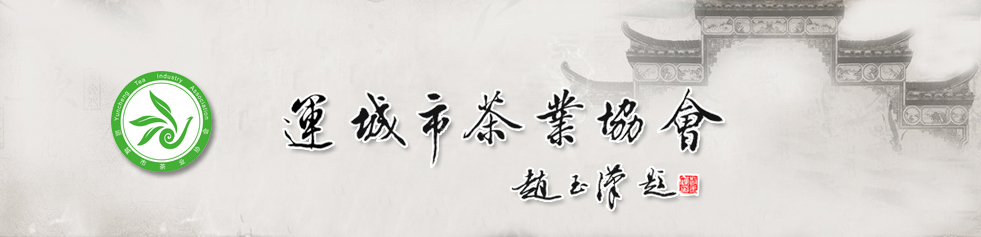 Yuncheng Tea Industry Association
运城市茶业协会
運城市茶業協會
趙玉漢題